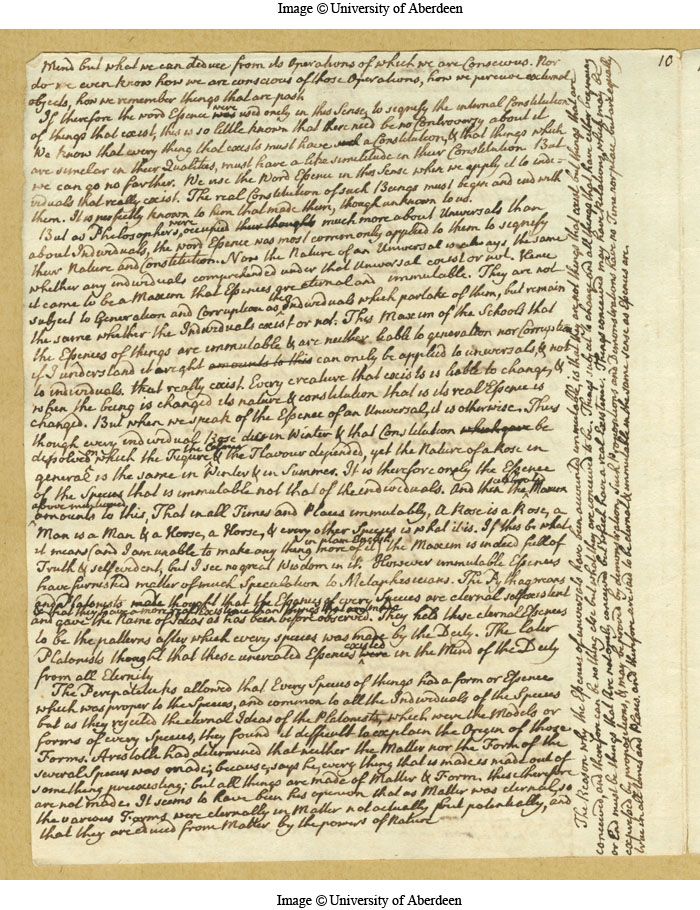 Image © University of Aberdeen
10
Mind but what we can deduce from its Operations of which we are Conscious. Nor
do we even know how we are conscious of those Operations, how we perceive external
objects, how we remember things that are past
If therefore the word Essence was were used only in this Sense, to signify the internal Constitution
of things that exist, this is so little known that there need be no Controversy about it
We know that every thing that exists must have such a Constitution, & that things which
are similar in their Qualities, must have a like similitude in their Constitution But
we can go no farther. We use the Word Essence in this Sense when we apply it to indi=
viduals that really exist. The real Constitution of such Beings must begin and end with
them. It is perfectly known to him that made them, though unknown to us.
But as Philosophers, were occupied their thoughts much more about Universals than
about Individuals, the word Essence was most commonly applied to them to signify
their Nature and Constitution. Now the Nature of an Universal is always the same
whether any individuals comprehended under that Universal exist or not. Hence
it came to be a Maxim that Essences are eternal and immutable. They are not
subject to Generation and Corruption as the Individuals which partake of them, but remain
the same whether the Individuals exist or not. This Maxim of the Schools that
the Essences of things are immutable & are neither liable to generation nor Corruption
if I understand it aright amounts to this can only be applied to universals, & not
to individuals. that really exist. Every creature that exists is liable to change, &
when the being is changed its nature & constitution that is its real Essence is
changed. But when we speak of the Essence of an Universal, it is otherwise. Thus
though every individual Rose dies in Winter & that Constitution which gave be
dissolved on which the Figure the Colour & the Flavour depended, yet the Nature of a Rose in
general is the same in Winter & in Summer. It is therefore only the Essence
of the Species that is immutable not that of the individuals. And then the Maxim
above mentioned amounts to this, That in all Times and Places immutably, A Rose is a Rose, a
Man is a Man & a Horse, a Horse, & every other Species is what it is. If this be what
it means (and I am unable to make any thing more of it in plain English) the Maxim is indeed full of
Truth & self evident, but I see no great Wisdom in it. However immutable Essences
have furnished matter of much Speculation to Metaphysicians. The Pythagoreans
and Platonists made thought that the Essences of every Species are eternal self existent
and gave the Name of Ideas as has been before observed. They held these eternal Essences
to be the patterns after which every species was made by the Deity. The later
Platonists thought that these uncreated Essences were existed in the Mind of the Deity
from all Eternity
The Peripateticks allowed that Every Species of things had a form or Essence
which was proper to the Species, and common to all the Individuals of the Species
but as they rejected the eternal Ideas of the Platonists, which were the Models or
forms of every Species, they found it difficult to explain the Origin of those
Forms. Aristotle had determined that neither the Matter nor the Form of the
several Species was made; because, says he, every thing that is made is made out of
something preexisting; but all things are made of Matter & Form. these therefore
are not made. It seems to have been his opinion that as Matter was eternal, so
the various Forms were eternally in Matter not actually but potentially, and
that they are educed from Matter by the powers of Nature
The Reason why the Essences of universals have been accounted immutable, is that they are not things that exist but things that are
conceived, and therefore can be nothing else but what they are conceived to be. Things
or End must be things that are not only conceived but which have a real Existence. Things conceived may have relations which may be
expressed by propositions, & may be proved by demonstration. Such Propositions and Demonstrations have no Time nor place but are equally
true in all times and Places, and therefore are said to be eternal & immutable in the same sense as Essences are.
Image © University of Aberdeen